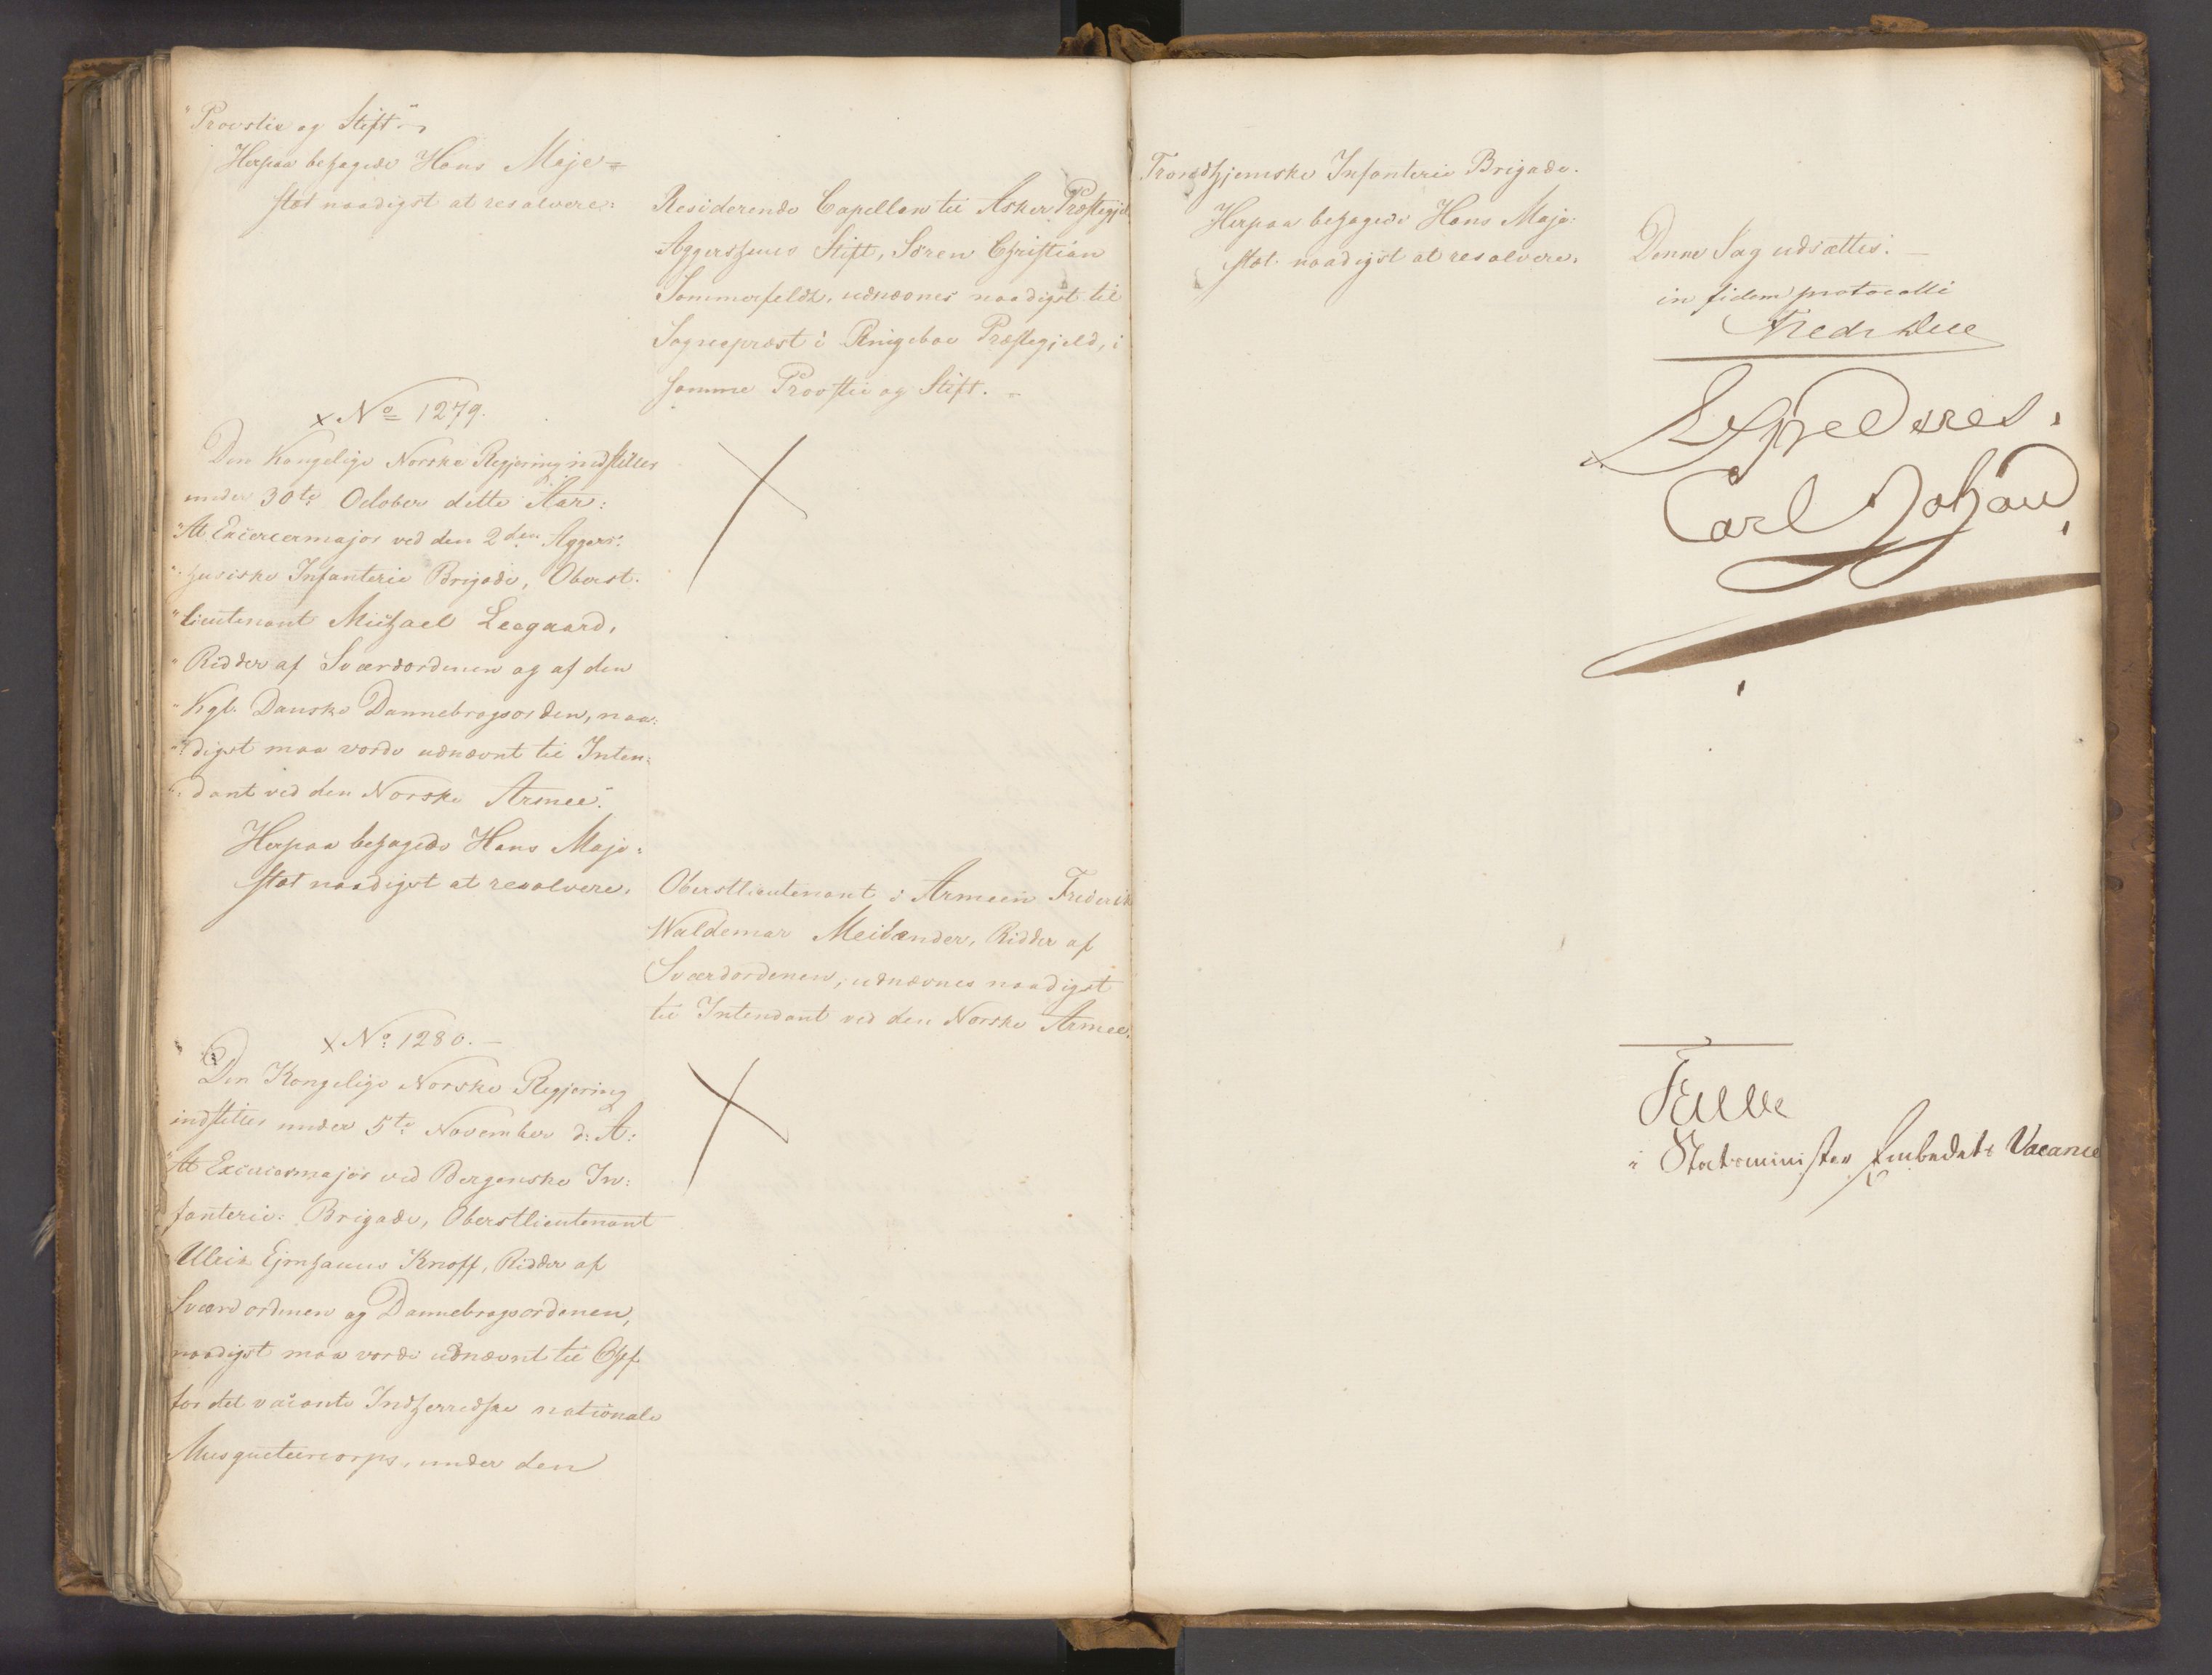 "Provstie og Stift."
Herpaa behagede Hans Maje=
stæt naadigst at resolvere:
Residerende Capellan til Asker Præstegjeld
Aggershuus Stift, Sören Christian
Sommerfeldt, udnævnes naadigst til
Sognepræst i Ringeboe Præstegjeld, i
samme Provstie og Stift.
x No 1279.
Den Kongelige Norske Regjering indstiller
under 30te October dette Aar:
"At Exercermajor ved den 2den Aggers:
"husiske Infanterie Brigade, Oberst:
"lieutenant Michael Leegaard,
"Ridder af Sværdordenen og af den
"Kgl. Danske Dannebrogsorden, naa:
"digst maa vorde udnævnt til Inten:
"dant ved den Norske Armee."
Herpaa behagede Hans Maje:
stæt naadigst at resolvere:
Oberstlieutenant i Armeen Frederik
Waldemar Meilænder, Ridder af
Sværdordenen, udnævnes naadigst
til Intendant ved den Norske Armee.
x No 1280.
Den Kongelige Norske Regjering
indstiller under 5te November d: A:
"At Exercermajor ved Bergenske In:
fanterie: Brigade, Oberstlieutenant
Ulrik Knoff, Ridder af
Sværdordenen og Dannebrogsordenen,
naadigst maa vorde udnævnt til Chef
for det vacante Indherredske nationale
Musqueteercorps, under den
Trondhjemske Infanterie Brigade.
Herpaa behagede Hans Maje:
stæt naadigst at resolvere:
Denne Sag udsættes.
in fidem protocolli
Fredr Due
Expederes.
Carl Johan
i Statsminister Embedets Vacance